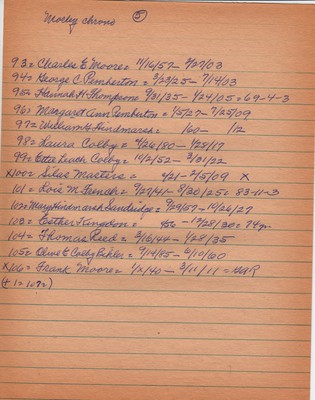 Morley chrono ⑤
93= Charles E Moore= 11/16/57- 9/27/03
94= George C. Pemberton = 3/29/25- 7/14/03
95= Hannah H. Thompson= 9/31/35- 1/24/05=69-4-3
96= Margaret Ann Pemberton = 1/5/27- 7/25/09
97= William H. Hindmarsh= 1860- 1912
98= Laura Colby= 4/26/80- 1/28/17
99= Etta Leach Colby= 10/2/52- 3/31/22
x100= Silas Masters = 4/21- 2/5/09 X
101= Lois M. French= 9/27/41- 8/30/25= 83-11-3
102= Mary Hindmarsh Sandidge= 9/29/57- 10/26/27
103= Esther Kingdon= 1856- 12/28/30= 74y.
104= Thomas Reed = 3/16/44- 1/28/35
105= Olive E Colby Behler= 9/14/85- 6/10/60
x106= Frank Moore= 1/x/40- 3/11/11 = GAR
(+1=107=)